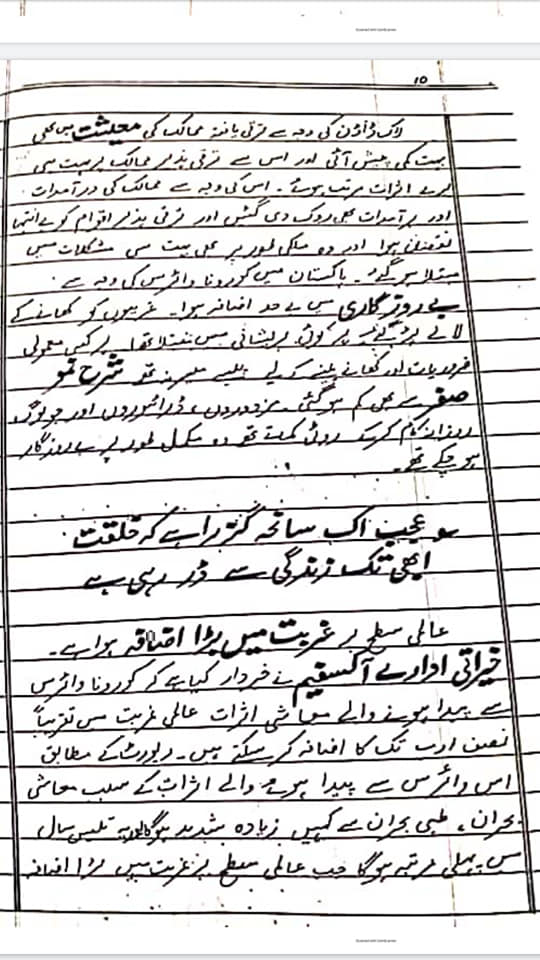 ۱۵
لاک ڈاؤن کی وجہ سے ترقی یافتہ ممالک کی معیشت میں بھی
بہت کمی پیش آئی اور اس سے ترقی پذیر ممالک پر بہت ہی
برے اثرات مرتب ہوئے۔ اس کی وجہ سے ممالک کی درآمدات
اور برآمدات بھی روک دی گئیں اور ترقی پذیر اقوام کو بے انتہا
نقصان ہوا اور وہ ملکی طور پر بھی بہت سی مشکلات میں
مبتلا ہو گئے۔ پاکستان میں کورونا وائرس کی وجہ سے
بے روزگاری میں بے حد اضافہ ہوا۔ غریبوں کو کھانے کے
لالے پڑ گئے۔ ہر کوئی پریشانی میں مبتلا تھا۔ ہر کسی معمولی
ضروریات اور کھانے پینے کے لیے پیسے میسر نہ تھے شرح نمو
صفر سے بھی کم ہو گئی۔ مزدوروں، ڈرائیوروں اور جو لوگ
روزانہ کام کر کے روٹی کماتے تھے وہ مکمل طور پر بے روزگار
ہو چکے تھے۔
عجب اک سانحہ گزرا ہے کہ خلقت
ابھی تک زندگی سے ڈر رہی ہے
عالمی سطح پر غربت میں بڑا اضافہ ہوا ہے۔
خیراتی ادارے آکسفیم نے خبردار کیا ہے کہ کورونا وائرس
سے پیدا ہونے والے معاشی اثرات عالمی غربت میں تقریباً
نصف ارب تک کا اضافہ کر سکتے ہیں۔ رپورٹ کے مطابق
اس وائرس سے پیدا ہونے والے اثرات کے سبب معاشی
بحران، طبی بحران سے کہیں زیادہ شدید ہو گا اور یہ تیس سال
میں پہلی مرتبہ ہو گا جب عالمی سطح پر غربت میں بڑا اضافہ